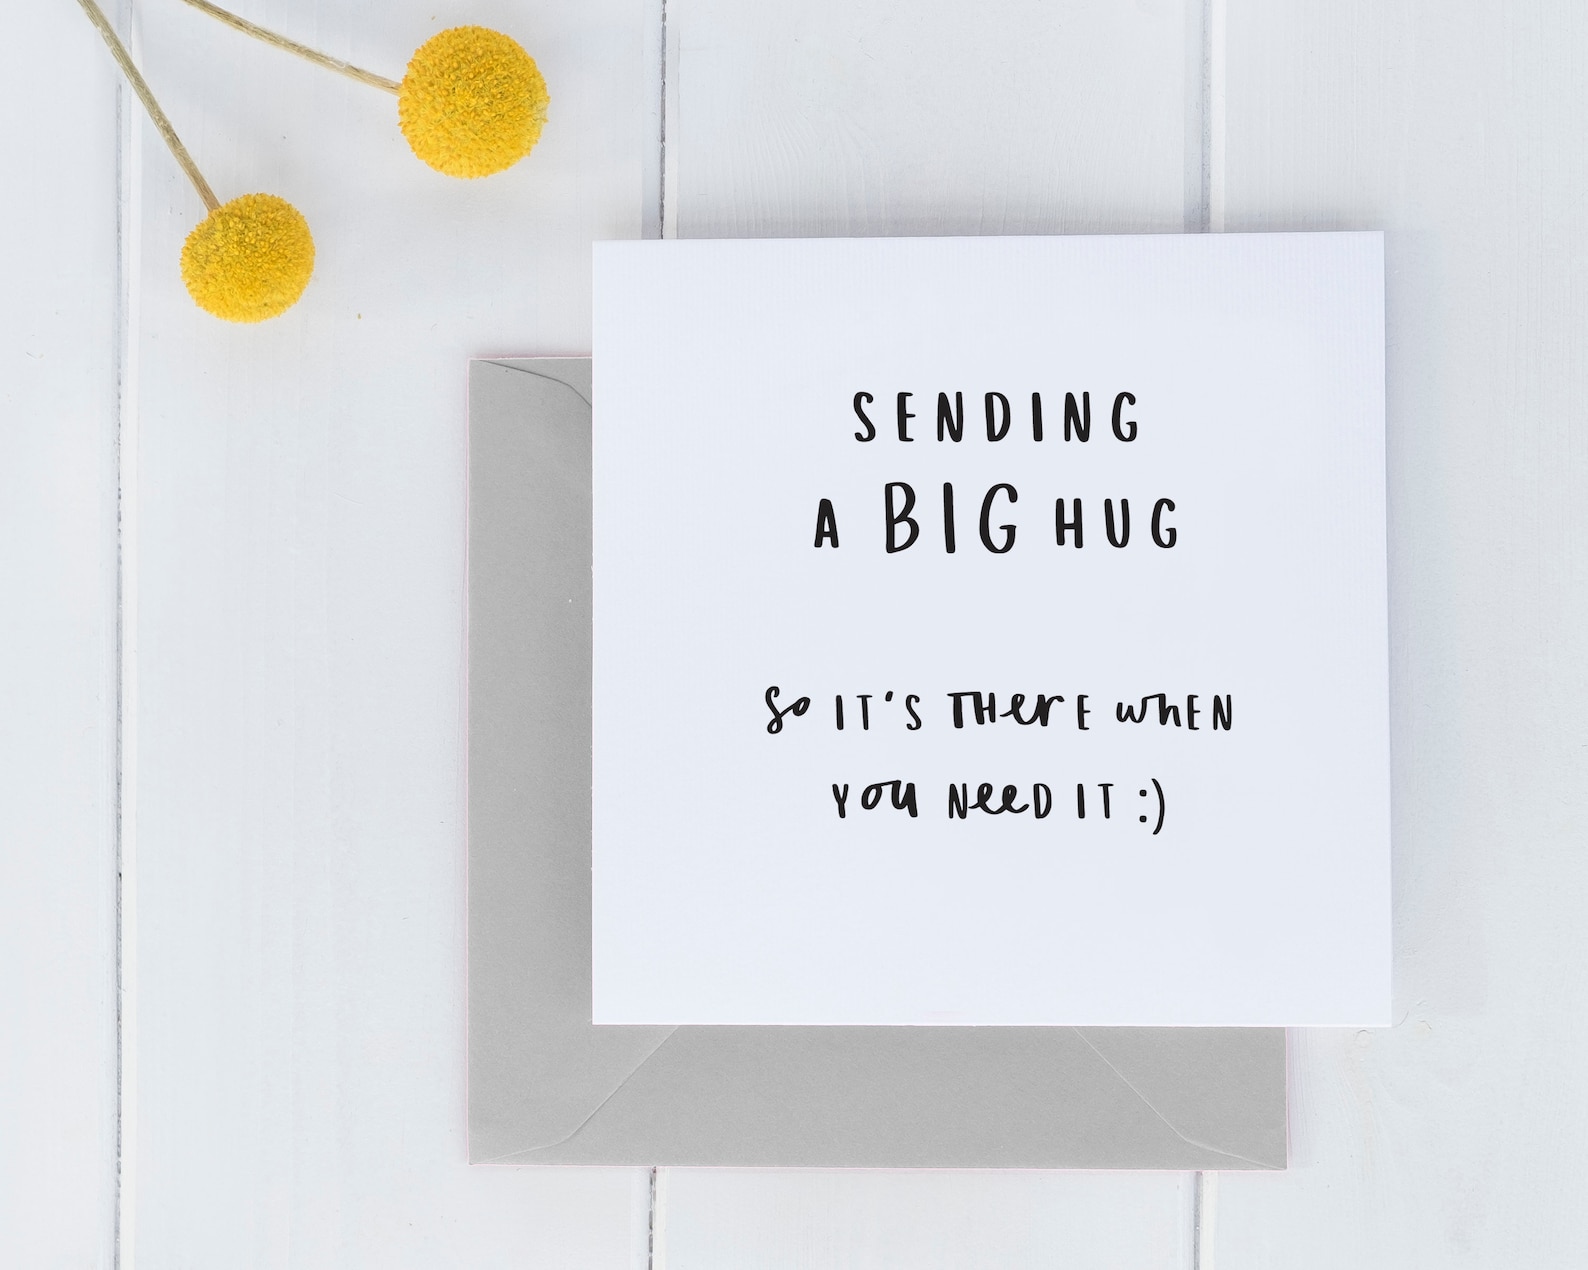 SENDING
A BIG HUG
So IT'S THerE wHEN
You NeeD IT :)